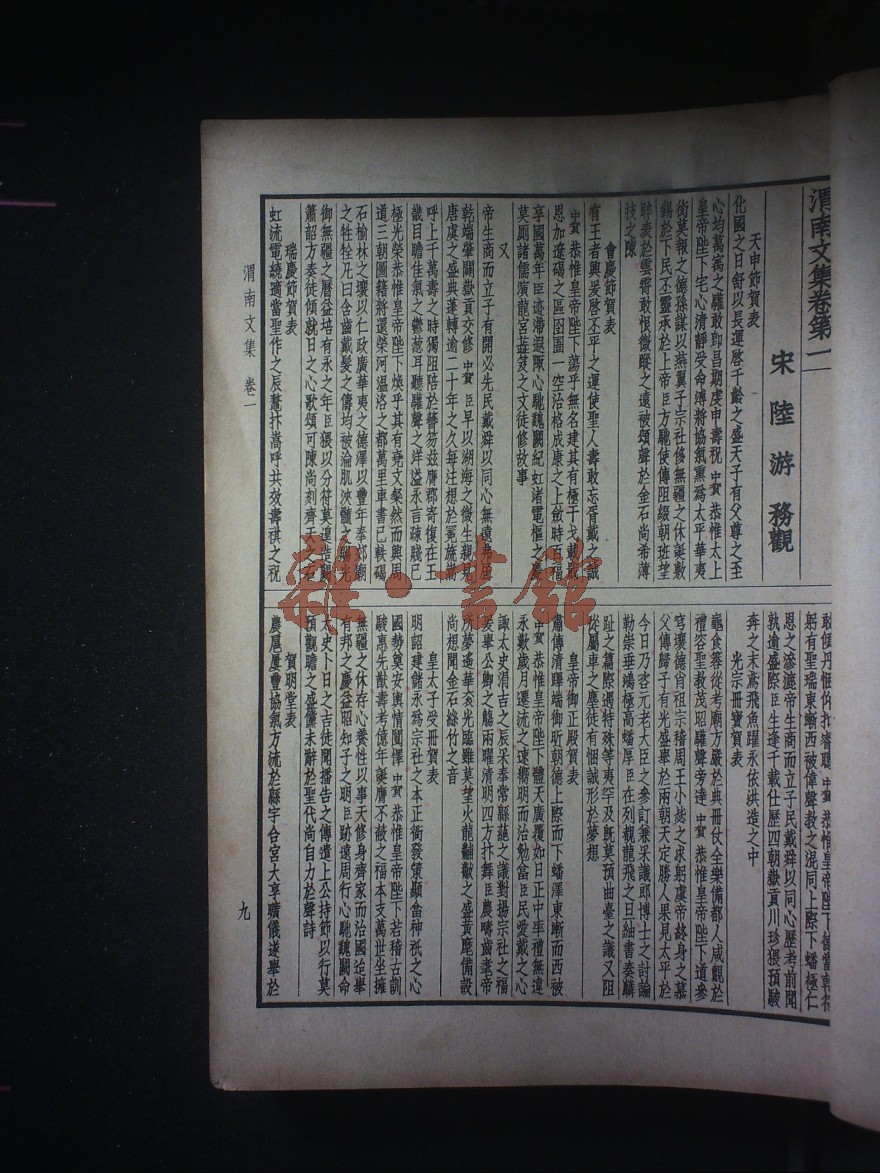 渭南文集卷第一
宋 陸 游 務觀
天申節賀表
化國之日舒以長運啓千齡之盛天子有父尊之至
心均萬寓之驩敢卽昌期虔申壽祝中賀恭惟太上
皇帝陛下宅心清靜受命溥將協氣熏爲太平華夷
銜莫報之德孫謀以燕翼子宗社侈無疆之休誕敷
錫於下民丕靈承於上帝臣方馳使傳阻綴朝班望
睟表於雲霄敢恨微蹤之遠被頌聲於金石尚希薄
技之陳
會慶節賀表
有王者興爰啓丕平之運使聖人壽敢忘胥戴之誠
中賀恭惟皇帝陛下蕩乎無名建其有極干戈載戢
恩加遼碣之區囹圄一空治格成康之上斂時百福
享國萬年臣迹滯遐陬心馳魏闕紀虹渚電樞之慶
莫厠諸儒演龍宮蘂笈之文徒修故事
又
帝生商而立子有開必先民戴舜以同心無遠弗屆
乾端肇闢嶽貢交修中賀臣早以湖海之微生親見
唐虞之盛典蓬轉逾二十年之久每注想於冕旒嵩
呼上千萬壽之時獨阻陪於簪笏玆膺郡寄復在王
畿目瞻佳氣之鬱葱耳聽驩聲之洋溢永言疎賤已
極光榮恭惟皇帝陛下煥乎其有堯文粲然而興周
道三朝圖籍將還榮河溫洛之都萬里車書已軼碣
石榆林之壤以仁政廣華夷之德澤以豐年奉郊廟
之牲牷凡曰含齒戴髮之儔均被淪肌浹髓之
御無疆之曆益培有永之年臣猥以分符莫遑造闕
簫韶方奏徒傾就日之心歌頌可陳尚刻齊天之石
瑞慶節賀表
虹流電繞適當聖作之辰鼇抃嵩呼共效壽祺之祝
敢傾丹悃仰扣睿聰中賀恭惟皇帝陛下
躬有聖瑞東漸西被偉聲教之混同上際下蟠極仁
恩之滲漉帝生商而立子民戴舜以同心歷考前聞
孰逾盛際臣生逢千載仕歷四朝嶽貢川珍猥預駿
奔之末鳶飛魚躍永依洪造之中
光宗冊寶賀表
龜食筮從考廟方嚴於典冊仗全樂備都人咸觀於
禮容聖敎茂昭驩聲旁達中賀恭惟皇帝陛下道參
穹壤德肖祖宗稽周王小毖之求躬虞帝終身之慕
父傳歸子有光盛舉於兩朝天定勝人果見太平於
今日乃咨元老大臣之參訂兼采議郎博士之討論
勒崇垂鴻極高蟠厚臣在列覩龍飛之旦紬書奏麟
趾之篇際遇特殊等夷罕及旣莫預曲臺之議又阻
從屬車之塵徒有悃誠形於夢想
皇帝御正殿賀表
肅傳清蹕端御昕朝德上際而下蟠澤東漸而西被
中賀恭惟皇帝陛下體天廣覆如日正中率禮無違
永歎歲月遷流之速嚮明而治勉當臣民愛戴之心
諏太史涓吉之辰采奉常緜蕝之議對揚宗社之福
爰舉公卿之觴兩曜清明四方抃舞臣農疇齒耄帝
所夢遙華袞光臨雖莫望火龍黼黻之盛黃麾備設
尚想聞金石絲竹之音
皇太子受冊賀表
明詔建儲永爲宗社之本正衙發策顯畣神祇之心
國勢奠安輿情闓懌中賀恭惟皇帝陛下若稽古訓
駿惠先猷壽考億年誕膺不赦之福本支萬世坐擁
無疆之休存心養性以事天修身齊家而治國迨舉
有邦之慶益昭知子之明臣跡遠周行心馳魏闕命
太史卜日之吉徒聞播告之傳遣上公持節以行莫
預觀瞻之盛儻未辭於聖代尚自力於聲詩
賀明堂表
農扈屢豐協氣方流於縣宇合宮大享曠儀遂舉於
渭南文集 卷一
九
雜·書館